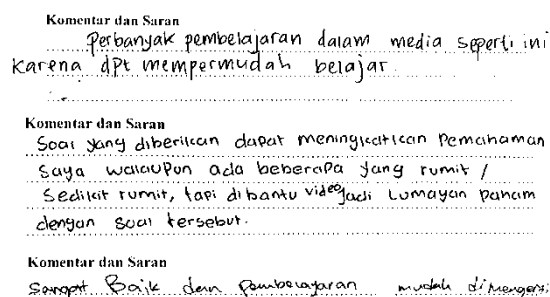 Komentar dan Saran
Perbanyak pembelajaran dalam media seperti ini
karena dpt mempermudah belajar.
Komentar dan Saran
Soal yang diberikan dapat meningkatkan pemahaman
saya walaupun ada beberapa yang rumit /
sedikit rumit, tapi dibantu video jadi lumayan paham
dengan soal tersebut.
Komentar dan Saran
Sangat Baik dan Pembelajaran mudah dimengerti